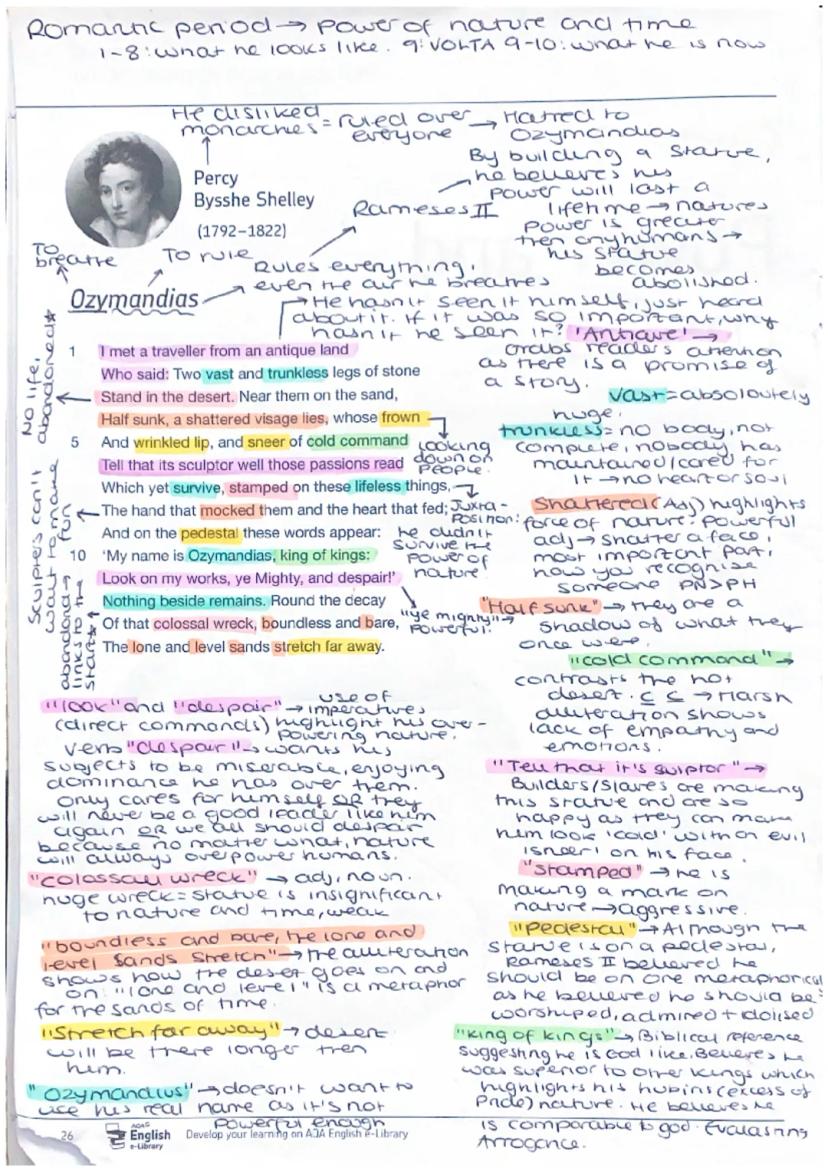 Romantic period → Power of nature and time
1-8: what he looks like. 9: VOLTA 9-10: what he is now
He disliked
monarchies = ruled over
everyone → Hatred to
Ozymandias
Percy
Bysshe Shelley
(1792–1822)
By building a statue,
he believes his
power will last a
lifetime → natures
power is greater
then any humans →
his statue
becomes
abolished.
Rameses II
To
breathe
To rule
Rules everything,
even the air he breathes
Ozymandias
He hasn't seen it himself, just heard
about it. If it was so important, why
hasn't he seen it?
'Antique' →
Grabs readers attention
as there is a promise of
a story.
1 I met a traveller from an antique land
Who said: Two vast and trunkless legs of stone
Stand in the desert. Near them on the sand,
Half sunk, a shattered visage lies, whose frown
5 And wrinkled lip, and sneer of cold command
Tell that its sculptor well those passions read
Which yet survive, stamped on these lifeless things,
The hand that mocked them and the heart that fed;
And on the pedestal these words appear:
10 'My name is Ozymandias, king of kings:
Look on my works, ye Mighty, and despair!'
Nothing beside remains. Round the decay
Of that colossal wreck, boundless and bare,
The lone and level sands stretch far away.
No life,
abandoned
Sculptors can't
wait to make
fun
abandoned →
links to the
start
looking
down on
people.
Juxta-
position:
he didn't
survive the
power of
nature
"ye mighty" →
Powerful.
vast = absoloutely
huge.
trunkless = no body, not
complete, nobody has
maintained/cared for
it → no heart or soul
Shattered (Adj) highlights
force of nature: Powerful
adj → shatter a face,
most important part,
how you recognise
someone PN>PH
"Half sunk" → they are a
shadow of what they
once were.
"cold command" →
contrasts the hot
desert. C C → Harsh
alliteration shows
lack of empathy and
emotions.
"Tell that it's sulptor" →
Builders/Slaves are making
this statue and are so
happy as they can make
him look 'cold' with an evil
'sneer' on his face.
"Stamped" → he is
making a mark on
nature → aggressive.
"Pedestal" → Although the
Statue is on a pedestal,
Rameses II believed he
should be on one metaphorical
as he believed he should be
worshiped, admired + idolised
"king of kings" → Biblical reference
suggesting he is God like. Believes he
was superior to other kings which
highlights his hubris (excess of
Pride) nature. He believes he
is comparable to god. Everlasting
Arrogance.
"look" and "despair" → use of
imperatives
(direct commands) highlight his over-
powering nature.
Verb "despair" → wants his
subjects to be miserable, enjoying
dominance he has over them.
Only cares for himself OR they
will never be a good leader like him
again OR we all should despair
because no matter what, nature
will always overpower humans.
"colossall wreck" → adj, noun.
huge wreck = statue is insignificant
to nature and time, weak
"boundless and bare, the lone and
level sands stretch" → the alliteration
shows how the desert goes on and
on. "lone and level" is a metaphor
for the sands of time.
"Stretch far away" → desert
will be there longer then
him.
"Ozymandius" → doesn't want to
use his real name as it's not
powerful enough
26 AQA
English
e-Library
Develop your learning on AQA English e-Library